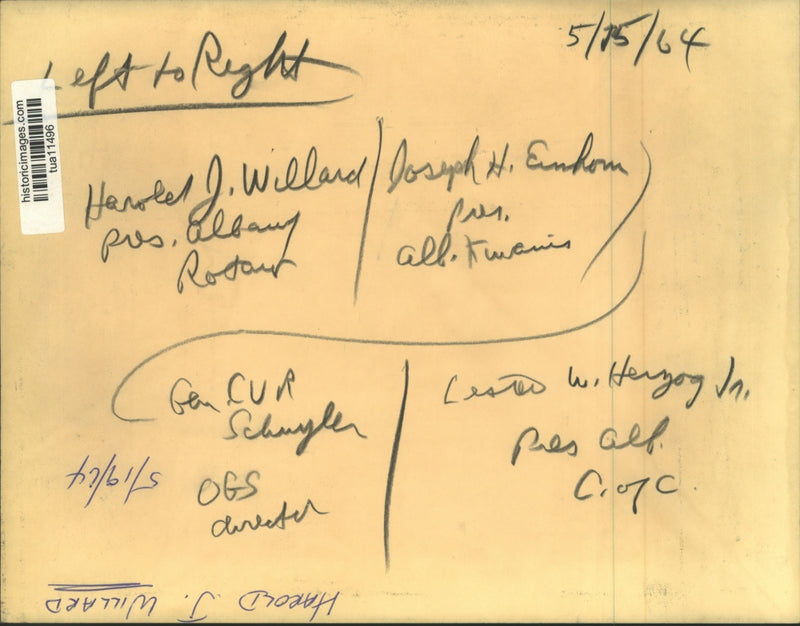 5/15/64
Left to Right
historicimages.com
tua11496
Harold J. Willard
pres. Albany
Rotary
Joseph H. Einhorn
pres.
Alb. Kiwanis
Gen. CVR
Schuyler
OGS
director
Lester W. Herzog Jr.
Pres Alb.
C. of C.
5/19/64
HAROLD J. WILLARD